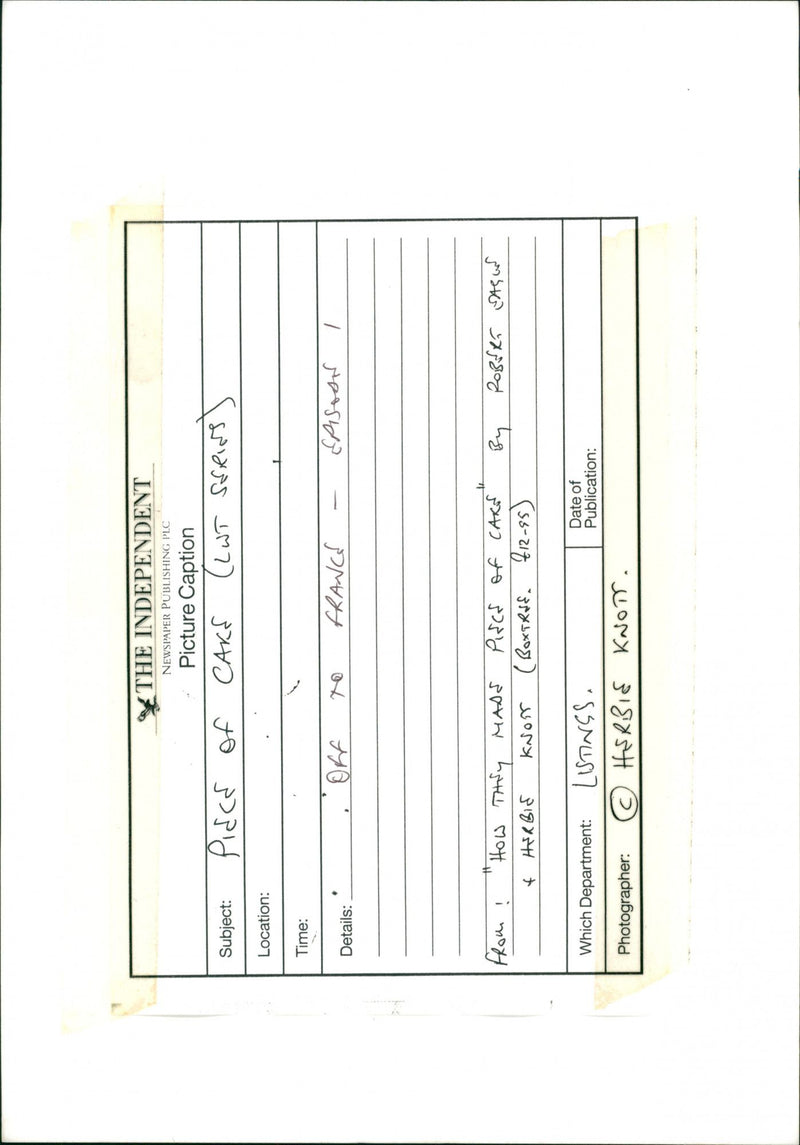 THE INDEPENDENT
NEWSPAPER PUBLISHING PLC
Picture Caption
Subject: PIECE OF CAKE (LWT SERIES)
Location:
Time:
Details: "OFF TO FRANCE – EPISODE 1
From: "HOW THEY MADE PIECE OF CAKE" By ROBERT EAGLE
+ HERBIE KNOTT (BOXTREE. £12-95)
Which Department: LISTINGS.
Date of Publication:
Photographer: © HERBIE KNOTT.